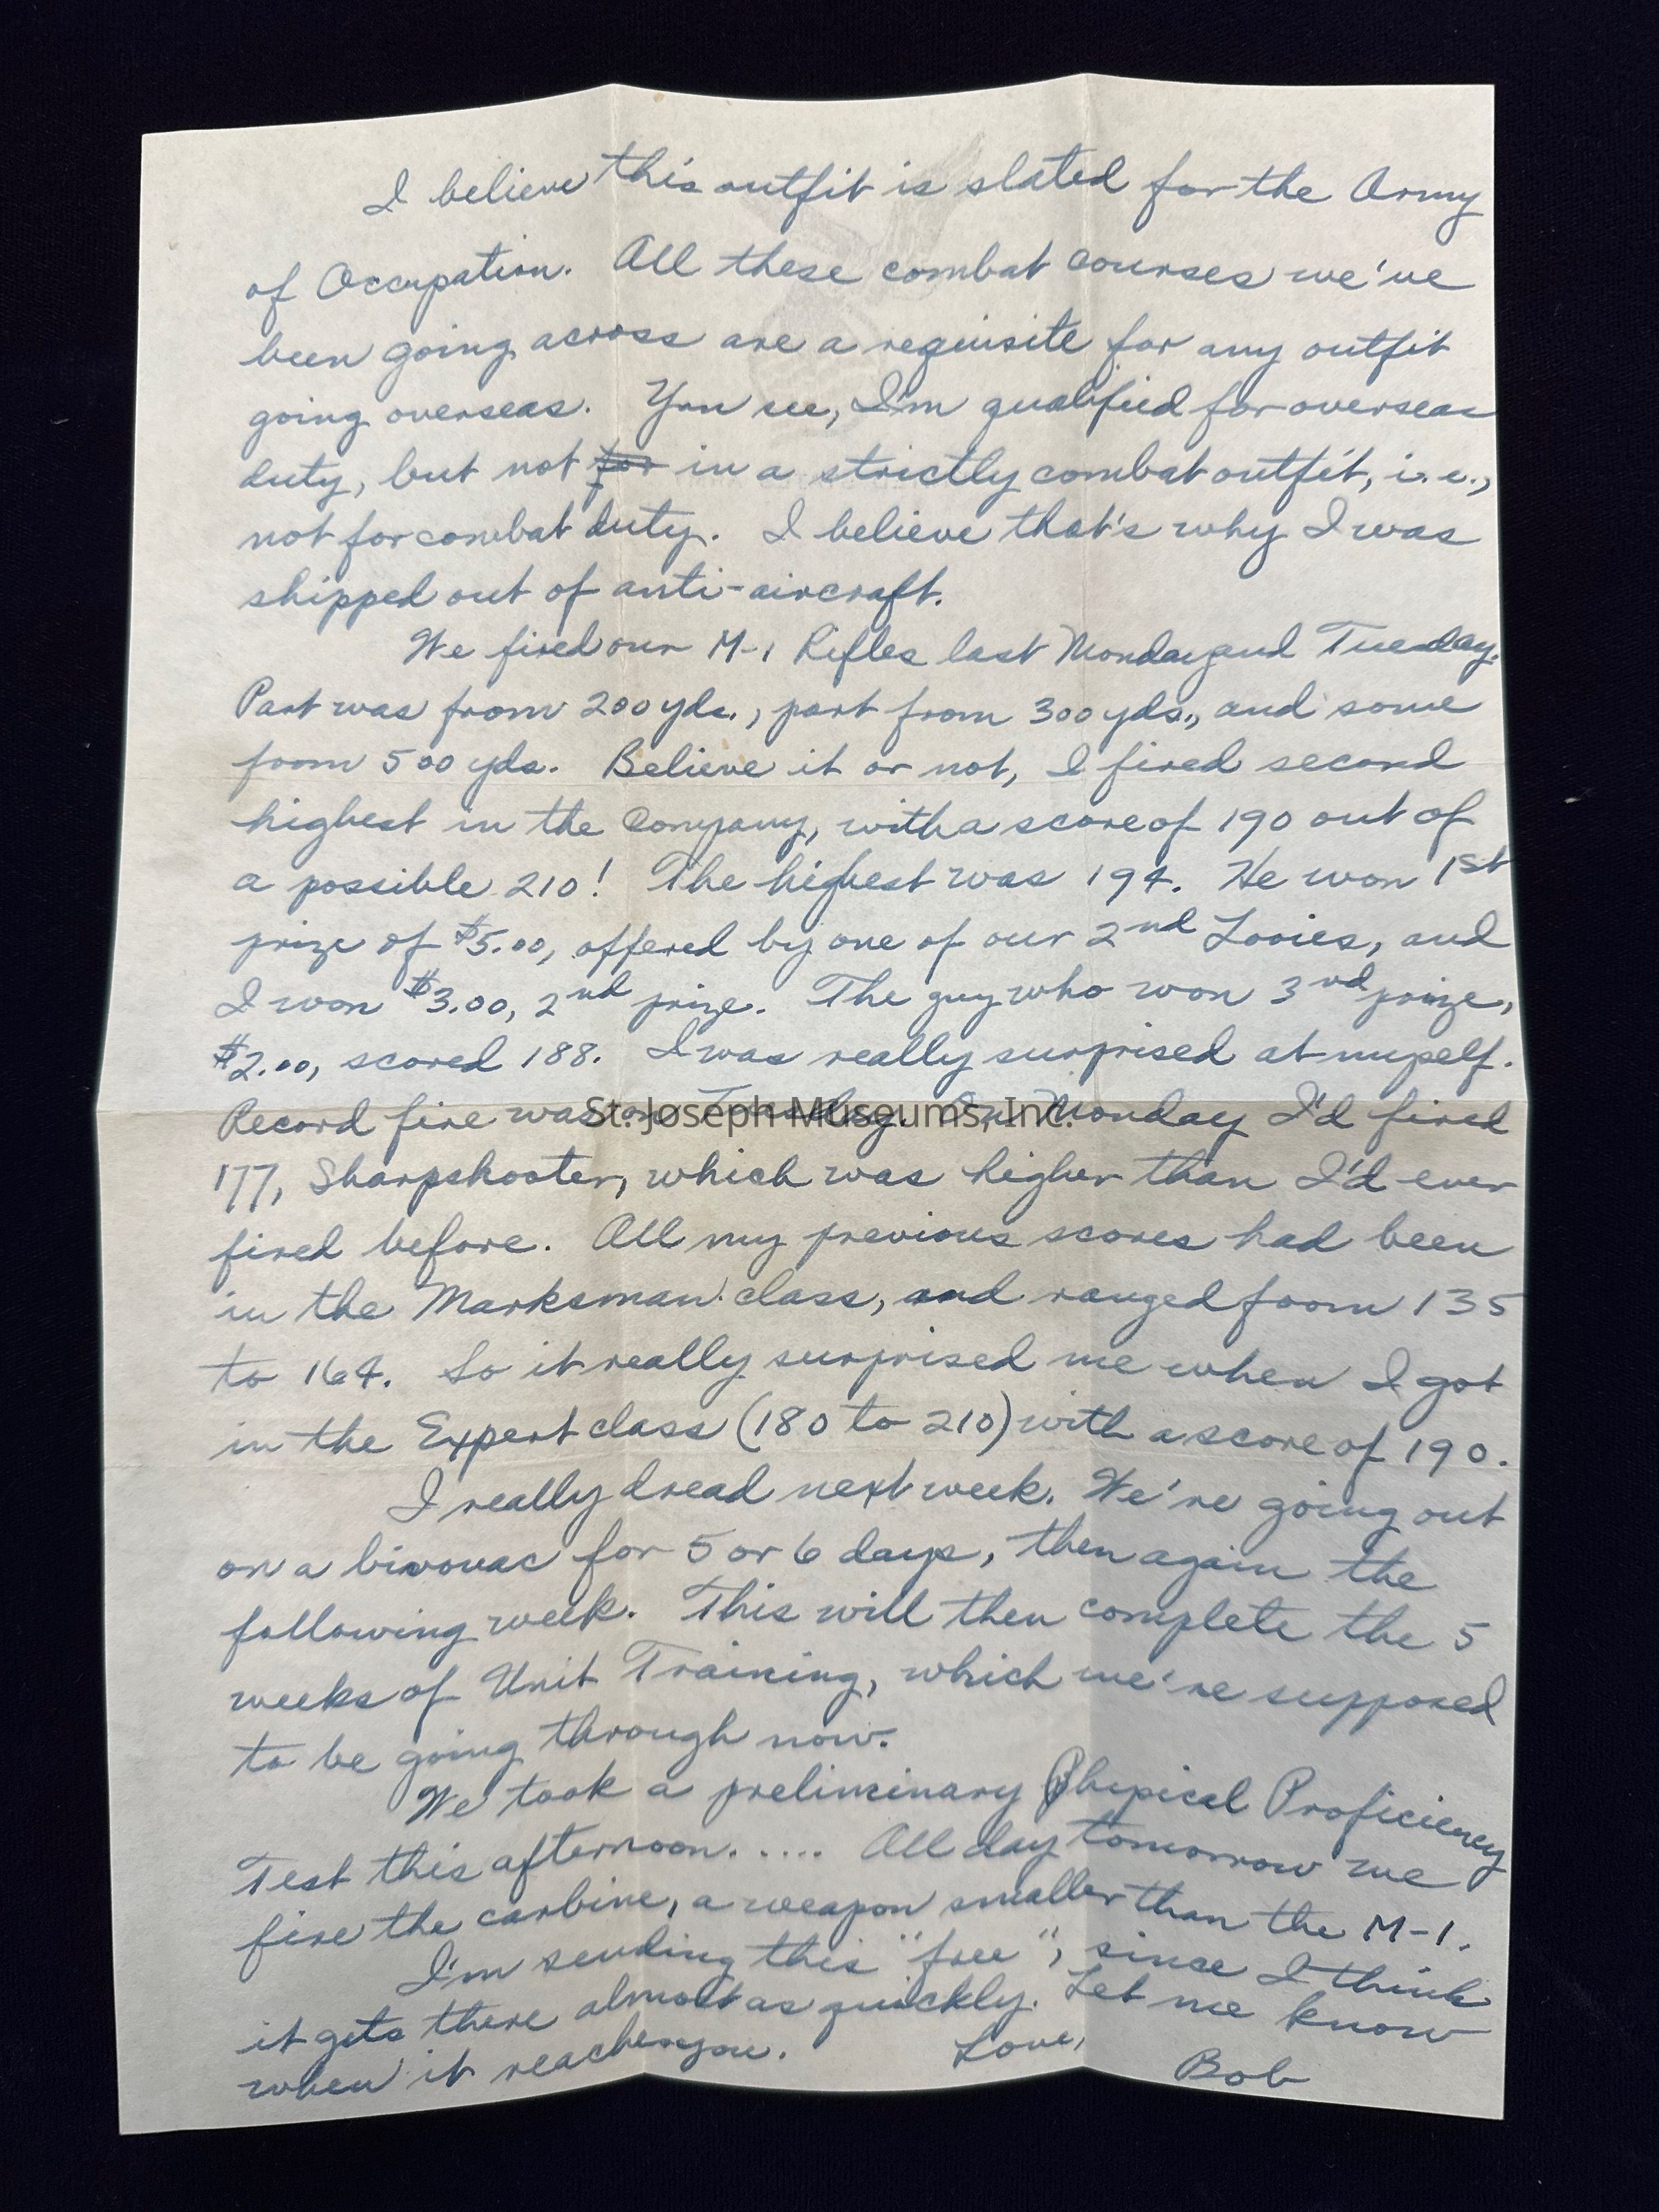 I believe this outfit is slated for the Army
of Occupation. All these combat courses we've
been going across are a requisite for any outfit
going overseas. You see, I'm qualified for overseas
duty, but not for in a strictly combat outfit, i.e.,
not for combat duty. I believe that's why I was
shipped out of anti-aircraft.
We fired our M-1 Rifles last Monday and Tuesday.
Part was from 200 yds., part from 300 yds., and some
from 500 yds. Believe it or not, I fired second
highest in the Company, with a score of 190 out of
a possible 210! The highest was 194. He won 1st
prize of $5.00, offered by one of our 2nd Looies, and
I won $3.00, 2nd prize. The guy who won 3rd prize,
$2.00, scored 188. I was really surprised at myself.
Record fire was on Tuesday. On Monday I'd fired
St. Joseph Museums, Inc.
177, Sharpshooter, which was higher than I'd ever
fired before. All my previous scores had been
in the Marksman class, and ranged from 135
to 164. So it really surprised me when I got
in the Expert class (180 to 210) with a score of 190.
I really dread next week. We're going out
on a bivouac for 5 or 6 days, then again the
following week. This will then complete the 5
weeks of Unit Training, which we're supposed
to be going through now.
We took a preliminary Physical Proficiency
Test this afternoon..... All day tomorrow we
fire the carbine, a weapon smaller than the M-1.
I'm sending this "free", since I think
it gets there almost as quickly. Let me know
when it reaches you. Love,
Bob